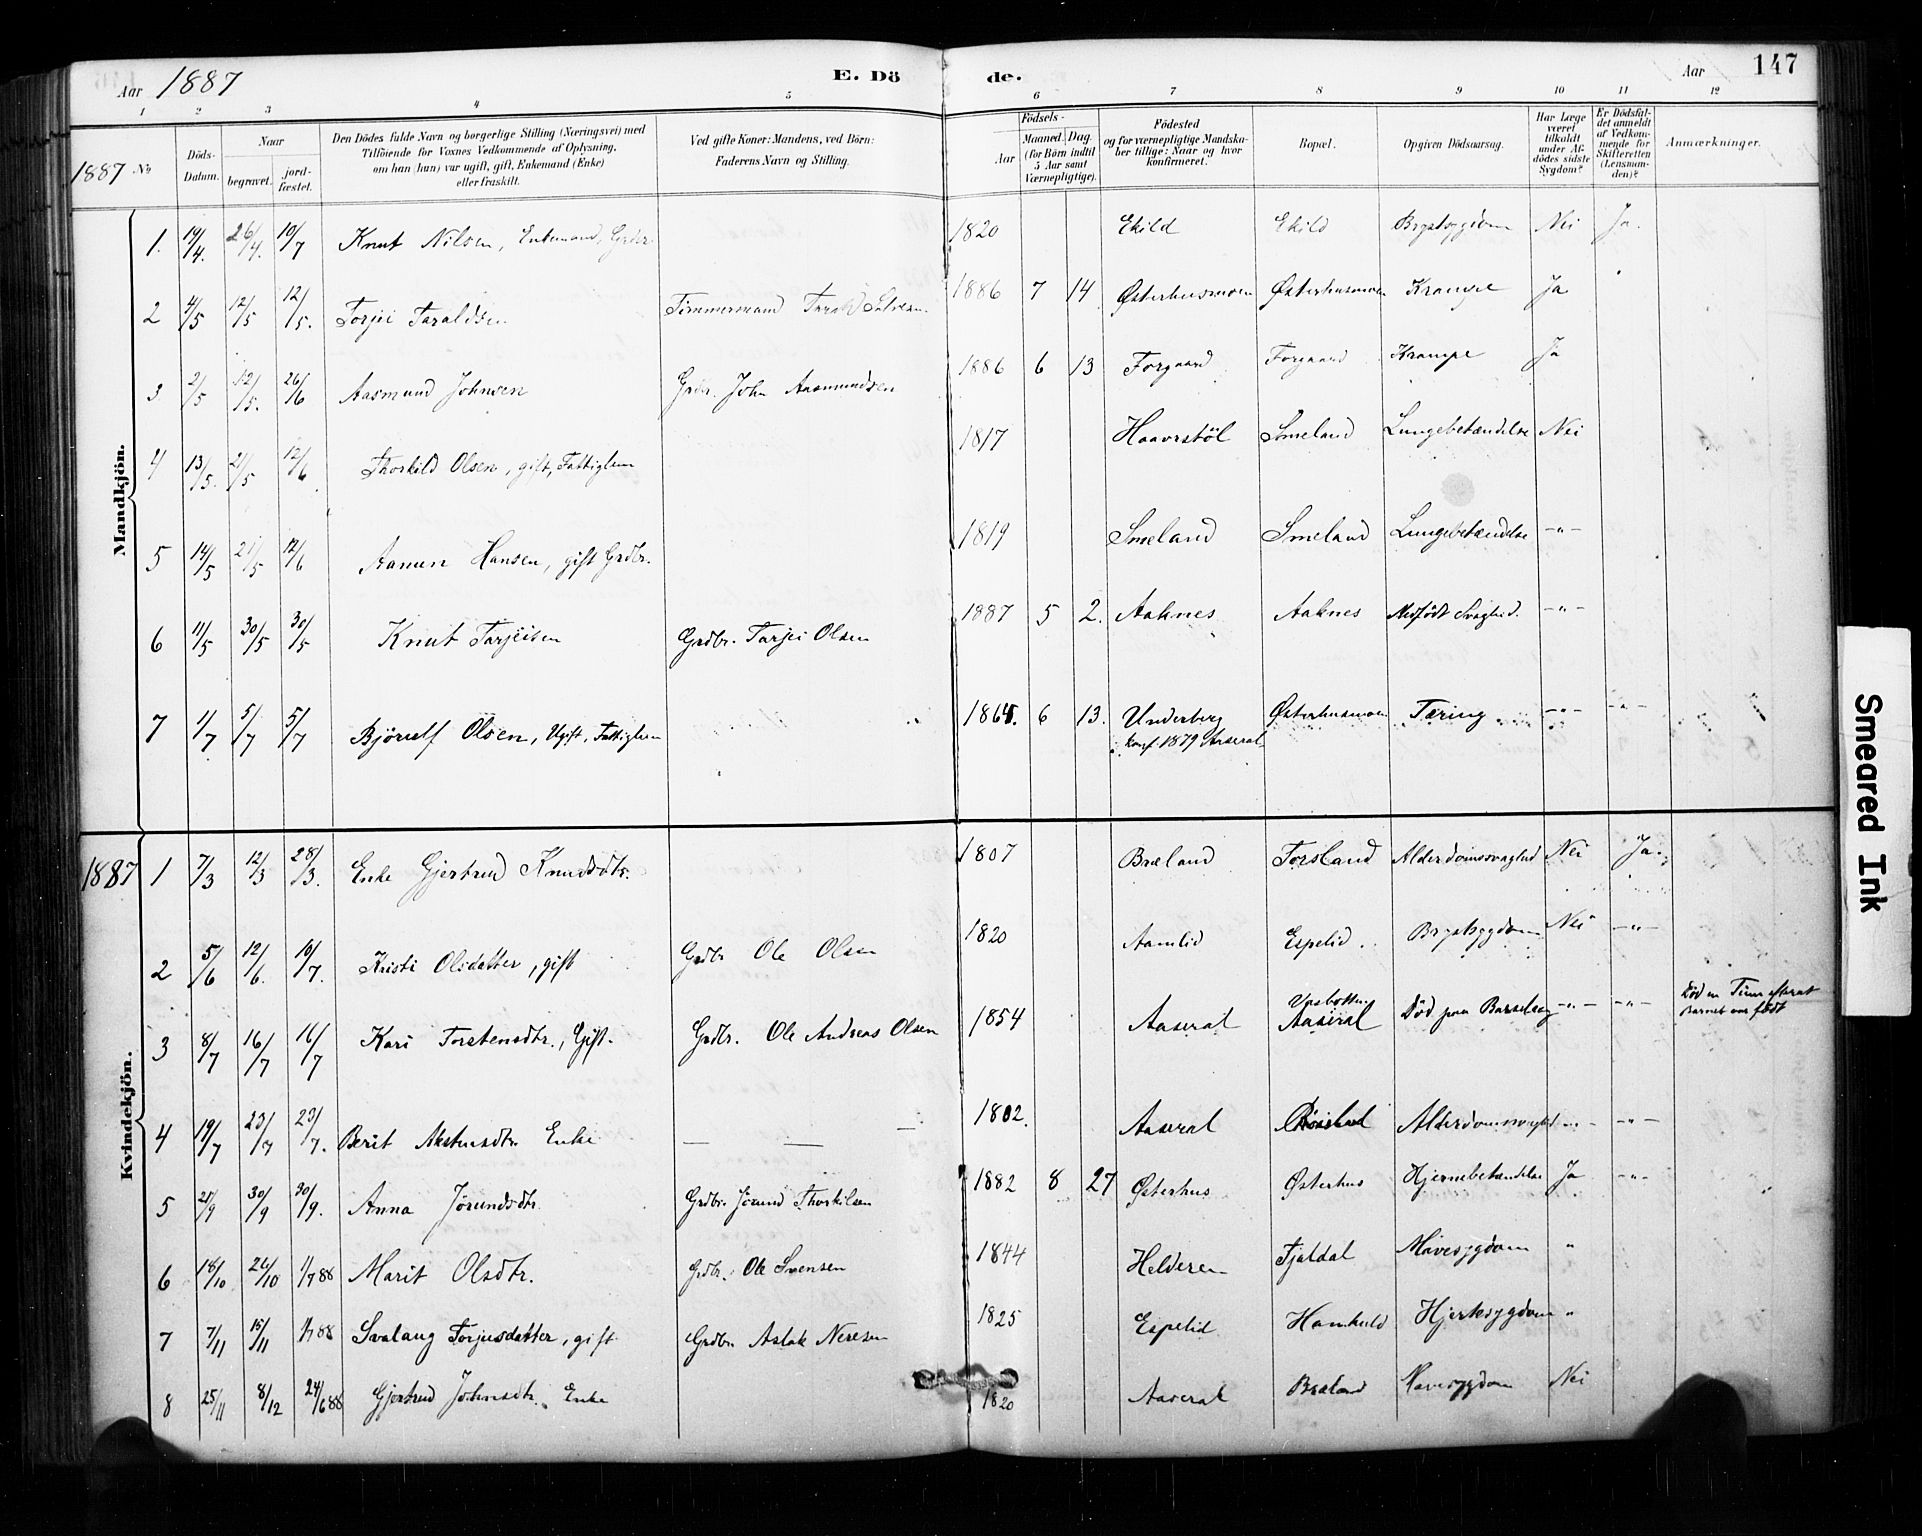 Aar 1887 E. Döde. Aar 147
1 2 3 4 5 6 7 8 9 10 11 12
1887 No.
Döds-Datum.
Naar
begravet.
jord-fæstet.
Den Dödes fulde Navn og borgerlige Stilling (Næringsvei) med
Tilföiende for Voxnes Vedkommende af Oplysning,
om han (hun) var ugift, gift, Enkemand (Enke)
eller fraskilt.
Ved gifte Koner: Mandens, ved Børn:
Faderens Navn og Stilling.
Födsels-
Aar
Maaned. Dag.
(for Börn indtil
5 Aar samt
Værnepligtige).
Födested
og for værnepligtige Mandska-
ber tillige: Naar og hvor
konfirmeret.
Bopæl.
Opgiven Dödsaarsag.
Har Læge
været
tilkaldt
under Af-
dödes sidste
Sygdom?
Er Dödsfal-
det anmeldt
af Vedkom-
mende for
Skifteretten
(Lensman-
den)?
Anmærkninger.
Mandkjön.
1. 19/4. 26/4. 10/7 Knut Nilsen, Enkemand, Grdbr. 1820 Ekild Ekild Brystsygdom Nei Ja.
2 4/5 12/5 12/5. Torjei Taraldsen Timmermand 1886 7 14 Østerhusmoen Østerhusmoen Krampe Ja
3 2/5 12/5. 26/6 Aasmund Johnsen Grdbr. John Aasmundsen 1886 6 13 Forgaard Forgaard Krampe Ja
4 13/5. 21/5 12/6 Thorkild Olsen, gift, Fattiglem 1817 Haavrstöl Smeland Lungebetændelse Nei
5 14/5 21/5 12/6 Aanen Hansen, gift Grdbr. 1819 Smeland Smeland Lungebetændelse -"-
6 11/5 30/5 30/5 Knut Tarjeisen Grdbr. Tarjei Olsen 1887 5 2. Aaknes Aaknes Medfödt Svaghed. -"-
7 1/7 5/7 5/7 Björulf Olsen, Ugift, Fattiglem 1864. 6 13. Underberg Østerhusmoen Tæring -"- -"-
konf. 1879 Aaseral
Kvindekjön.
1887 1 7/3 12/3 28/3. Enke Gjertrud Knudsdtr. 1807 Bræland Forsland Alderdomssvaghed Nei Ja.
2 5/6 12/6. 10/7. Kristi Olsdatter, gift Grdbr Ole Olsen 1820 Aamlid Espelid. Brystsygdom Nei -"-
3 8/7 16/7 16/7 Kari Torstensdtr., Gift. Grdbr. Ole Andreas Olsen 1854 Aaseral Aaseral Död paa Barselseng -"- -"- Död en Time efterat
Barnet var födt
4 19/7 23/7 23/7. Berit Enke — — — 1802. Aaseral Alderdomssvaghed -"- -"-
5 21/9 30/9 30/9. Anna Jörundsdtr. Grdbr. Jörund Thorkilsen 1882 8 27 Østerhus Østerhus Hjernebetændelse Ja -"-
6 18/10 26/10 1/7 88 Marit Olsdtr. Grdbr. Ole Svensen 1844 Helderen Tjaldal Mavesygdom "
7 7/11 15/11 1/7 88 Svalaug Torjusdatter, gift Grdbr. Aslak Neresen 1825 Espelid Hamkild Hjertesygdom "
8 25/11 8/12 24/6 88 Gjertrud Johnsdtr. Enke 1820 Aaseral Bræland Mavesygdom Nei
Smeared Ink